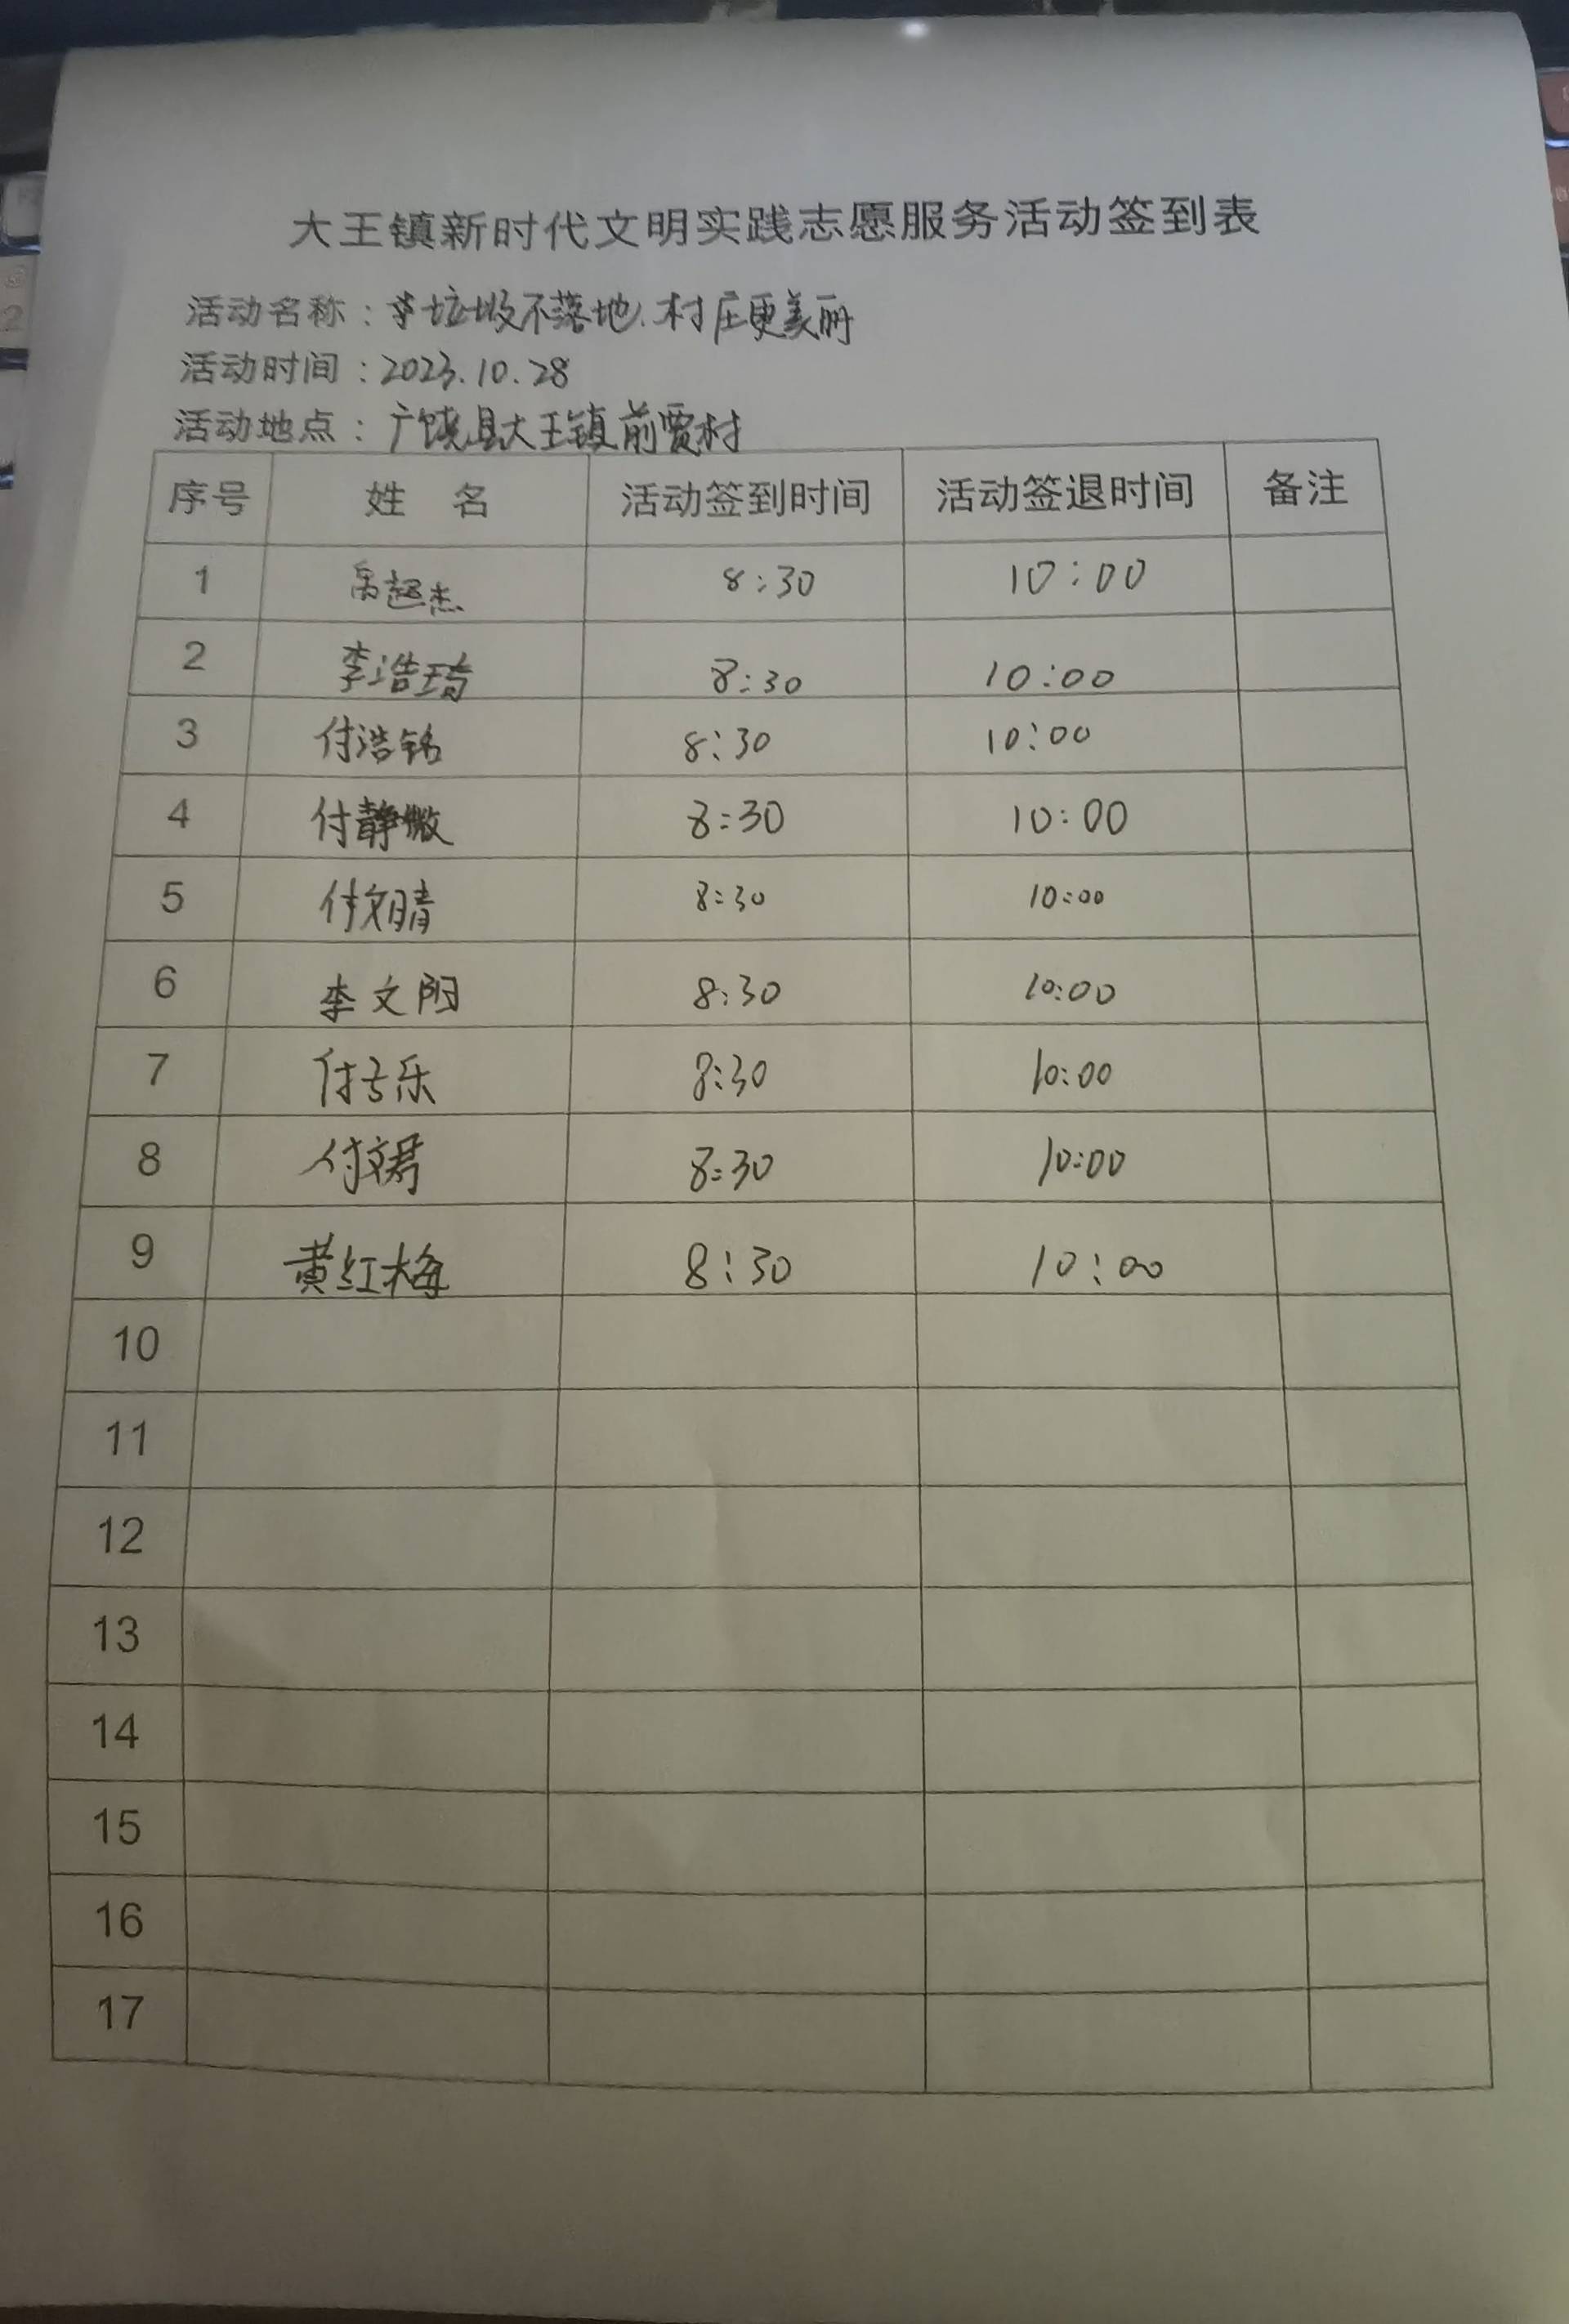 大王镇新时代文明实践志愿服务活动签到表
活动名称：垃圾不落地、村庄更美丽
活动时间：2023.10.28
活动地点：广饶县大王镇前贾村
序号 姓 名 活动签到时间 活动签退时间 备注
1 超杰 8:30 10:00
2 李浩琦 8:30 10:00
3 付浩铭 8:30 10:00
4 付静微 8:30 10:00
5 付文晴 8:30 10:00
6 李文阳 8:30 10:00
7 付乐 8:30 10:00
8 付文君 8:30 10:00
9 黄红梅 8:30 10:00
10
11
12
13
14
15
16
17